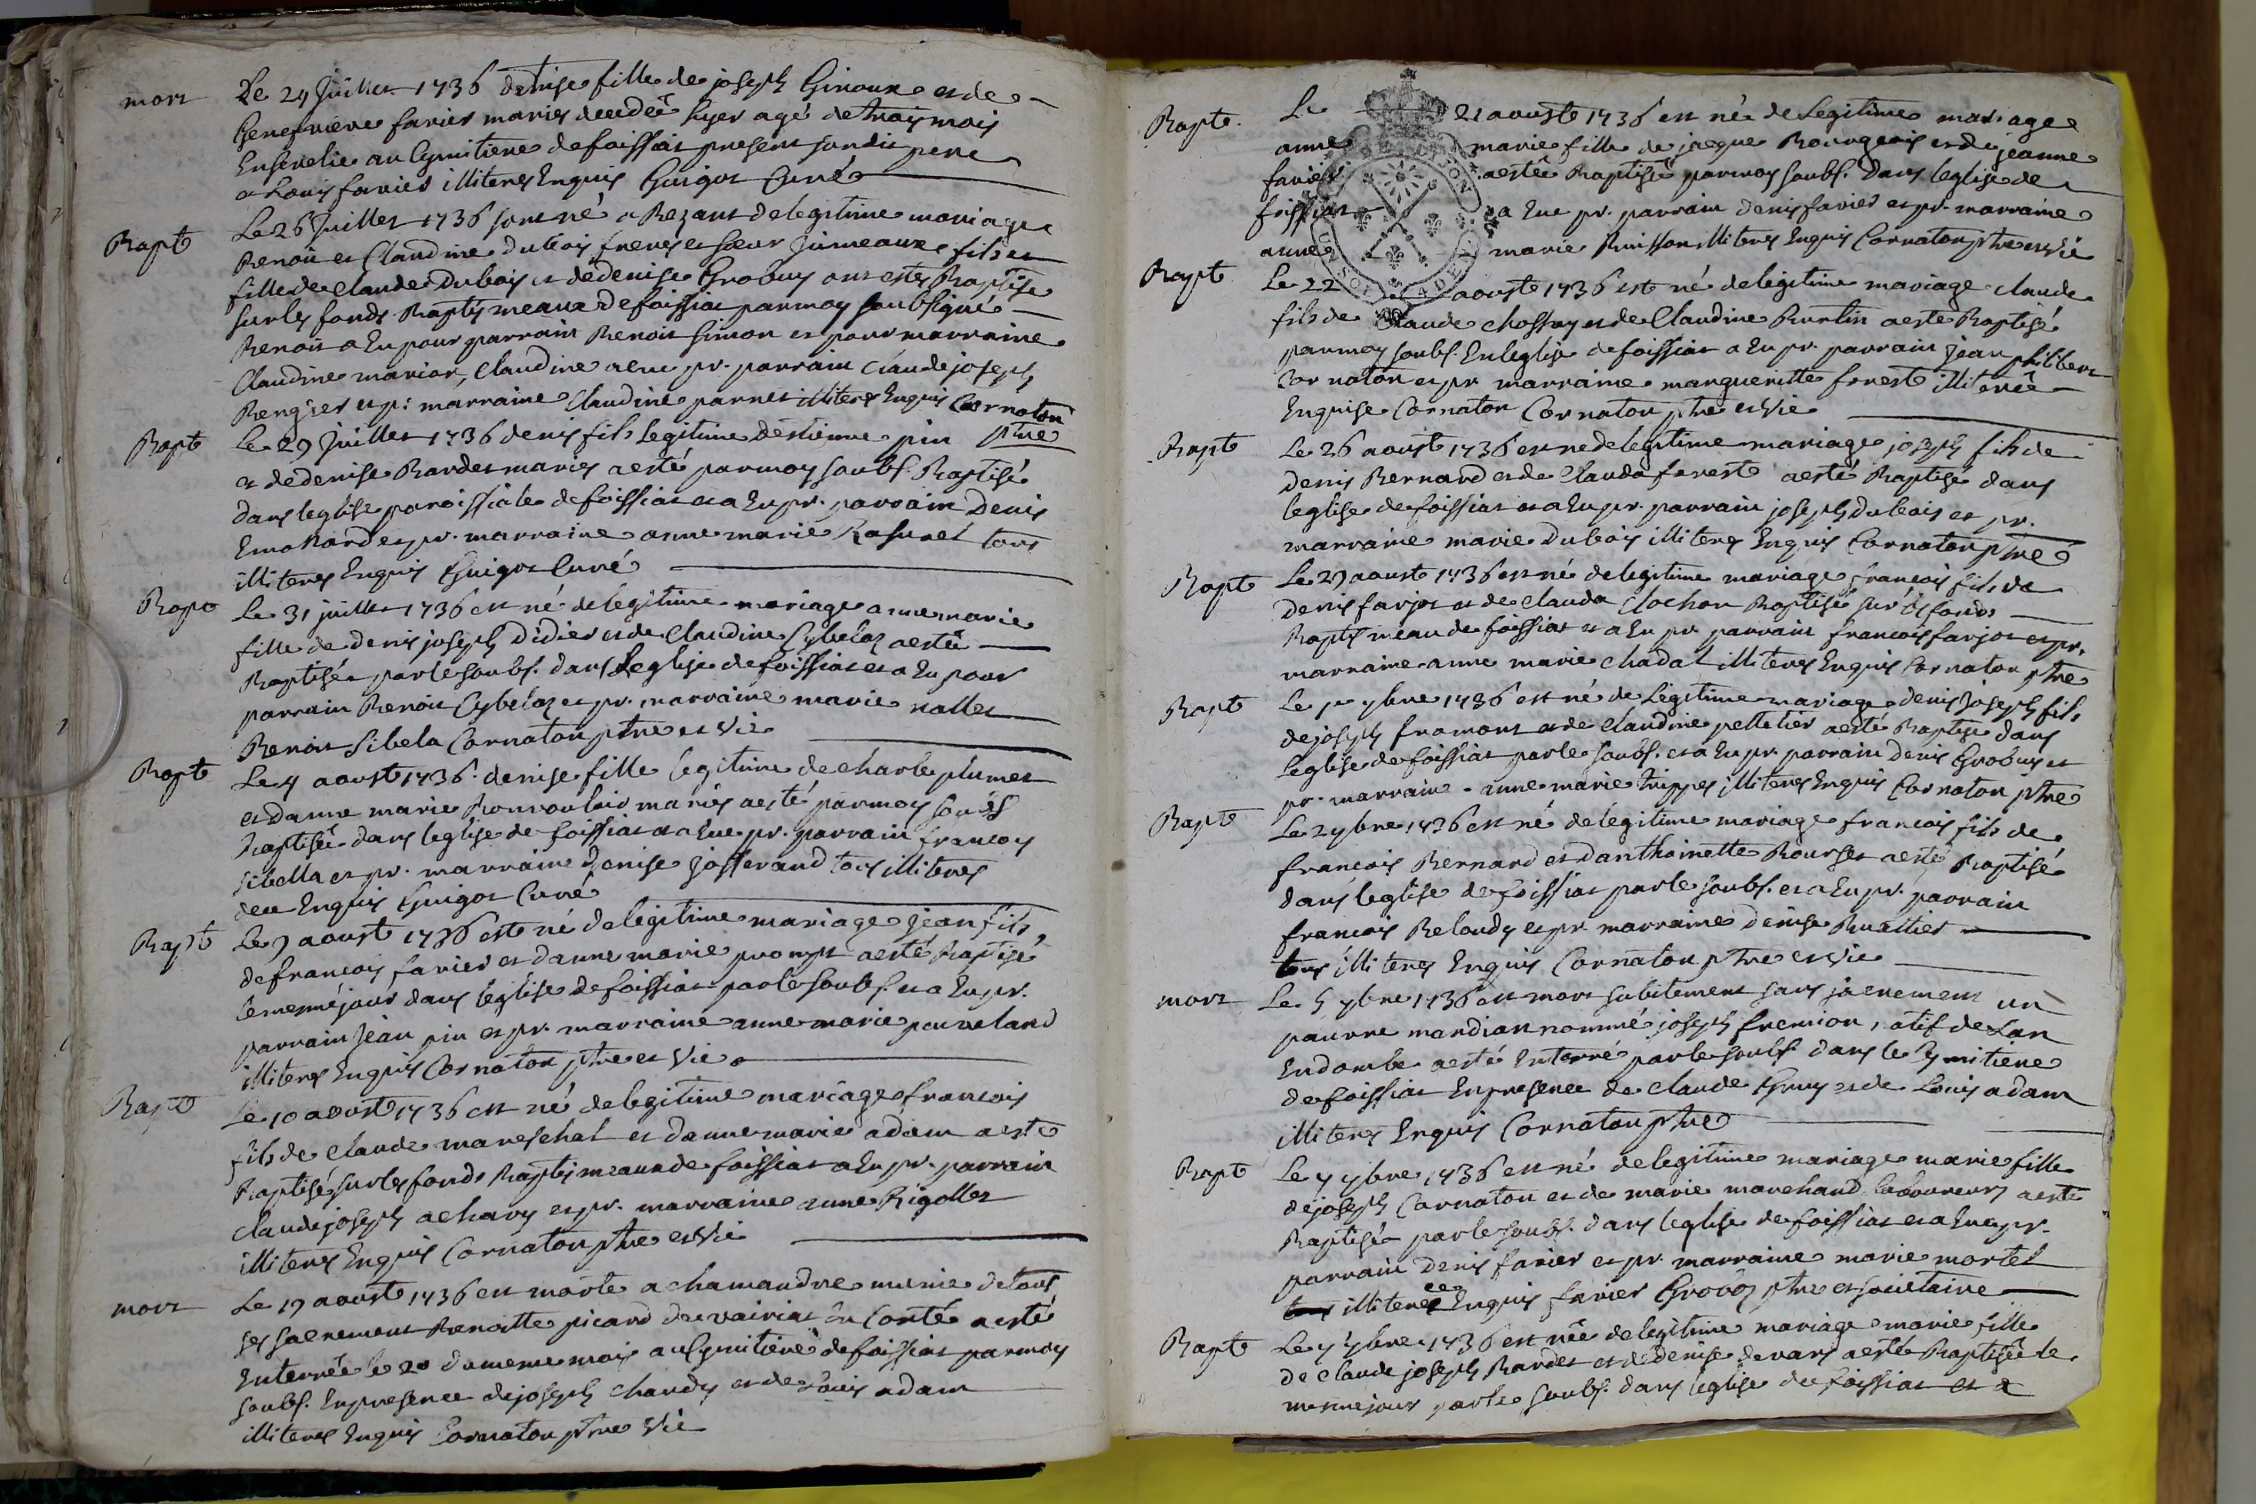 mort Le 24 Juillet 1736 denise fille de joseph Giroux et de
Genevieve favier mariés decedeé hyer agé de trois mois
Ensevelie au Cymitiere de foissiat present sondit pere
et Louis favier illiteres Enquis Guigot Curé
Bapt Le 26 Juillet 1736 sont né a Bezant de legitime mariage
Benoit et Claudine dubois freres et sœur Jumeaux fils et
fille de Claude Dubois et de denise Grobuy ont estes Baptise
sur les fonds Baptismeaux de foissiat par moy soubsigné
Benoit a Eu pour parrain Benoit Simon et pour marraine
Claudine marior, Claudine a eue pr. parrain Claude joseph
et p: marraine Claudine parnet illiteres Enquis Cornaton ptre
Bapt Le 29 Juillet 1736 denis fils legitime destienne pin
et de denise Bardet mariés a esté par moy soubs. Baptisé
dans leglise paroissiale de foissiat et a Eu pr. parrain Denis
Emonard et pr. marraine anne marie Rasurel tous
illiteres Enquis Guigot Curé
Bapt Le 31 juillet 1736 est né de legitime mariage anne marie
fille de denis joseph Didier et de Claudine Cybelaz a esté
Baptisée par le soubs. dans Leglise de foissiat et a Eu pour
parrain Benoit Cybelaz et pr. marraine marie nallet
Benoit Sibela Cornaton ptre et Vic
Bapt Le 4 aoust 1736. denise fille legitime de charle plumet
et danne marie mariés a esté par moy soubs
Baptisée dans leglise de foissiat et a Eue pr. parrain francois
Sibella et pr. marraine Denise Josserand tous illiteres
deu Enquis Guigot Curé
Bapt Le 9 aoust 1736 est né de legitime mariage Jean fils
de francois favier et danne marie prompt a esté Baptisé
le meme jour dans leglise de foissiat par le soubs. et a Eu pr.
parrain Jean pin et pr. marraine anne marie pouveland
illiteres Enquis Cornaton ptre et Vic
Bapt Le 10 aoust 1736 est né de legitime mariage francois
fils de Claude mareschal et danne marie adam a esté
Baptisé sur les fonds Baptismeaux de foissiat a Eu pr. parrain
Claude joseph achary et pr. marraine anne Rigollet
illiteres Enquis Cornaton ptre et Vic
mort Le 19 aoust 1736 est morte a chamandre munie de tous
ses sacrement Benoitte picard de vairiat En Conté a esté
Enterreé le 20 du meme mois au Cymitiere de foissiat par moy
soubs. En presence de joseph chardy et de Louis adam
illiteres Enquis Cornaton ptre Vic
Bapt. Le 21 aouste 1736 est né de Legitime mariage
anne marie fille de jacque Bourgeois et de jeanne
favier a esteé Baptisé par moy soubs. dans leglise de
foissiat a Eue pr. parrain denis favier et pr. marraine
anne marie Buisson illiteres Enquis Cornaton ptre et Vic
Bapt Le 22 aouste 1736 est né de legitime mariage claude
fils de Claude chossay et de Claudine Burtin a esté Baptisé
par moy soubs. En leglise de foissiat a Eu pr. parrain jean philibert
Cornaton et pr marraine margueritte foreste illiterée
Enquise Cornaton Cornaton ptre et Vic
Bapt Le 26 aoust 1736 est né de legitime mariage joseph fils de
denis Bernard et de Clauda foreste a esté Baptisé dans
leglise de foissiat et a Eu pr. parrain joseph Dubois et pr.
marraine marie Dubois illiteres Enquis Cornaton ptre
Bapt Le 29 aoust 1736 est né de legitime mariage francois fils de
denis farjot et de clauda Clochon Baptisé sur les fonds
Baptismeau de foissiat et a Eu pr. parrain francois farjot et pr.
marraine anne marie chadal illiteres Enquis Cornaton ptre
Bapt Le 1er 7bre 1736 est né de Légitime mariage denis Joseph fils
de joseph framont et de Claudine pelletier a esté Baptisé dans
leglise de foissiat par le soubs. et a Eu pr. parrain denis Grobuy et
pr. marraine anne marie trippes illiteres Enquis Cornaton ptre
Bapt Le 2 7bre 1736 est né de legitime mariage francois fils de
francois Bernard et danthoinette Bourset a esté Baptisé
dans leglise de foissiat par le soubs. et a Eu pr. parrain
francois Belaudy et pr marraine denise Buattier
tous illiteres Enquis Cornaton ptre et Vic
mort Le 5 7bre 1736 est mort subitement sans sacrement un
pauvre mandiant nommé joseph fremion, natif de Lan
En dombe a esté Enterré par le soubs. dans le Cymitiere
de foissiat En presence de claude Gruy et de Louis adam
illiteres Enquis Cornaton ptre
Bapt Le 7 7bre 1736 est né de legitime mariage marie fille
de joseph Cornaton et de marie marchand laboureurs a esté
Baptisée par le soubs. dans leglise de foissiat et a Eue pr.
parrain denis favier et pr. marraine marie mortel
illiteres Enquis favier Groboz ptre et societaire
Bapt Le 7 7bre 1736 est née de legitime mariage marie fille
de claude joseph Bardet et de denise devars a esté Baptisée le
meme jour par le soubs. dans leglise de foissiat et a